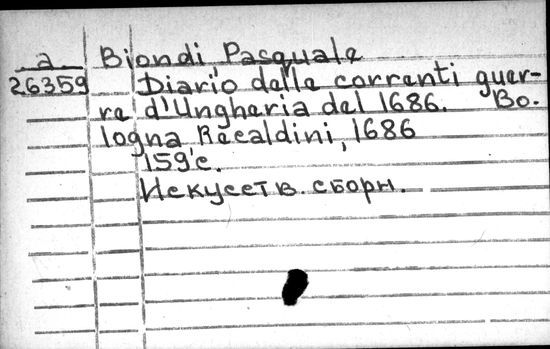 a Biondi Pasquale
26359 Diario delle correnti guer-
re d'Ungheria del 1686. Bo-
logna Recaldini, 1686
159 c.
Искусств. сборн.